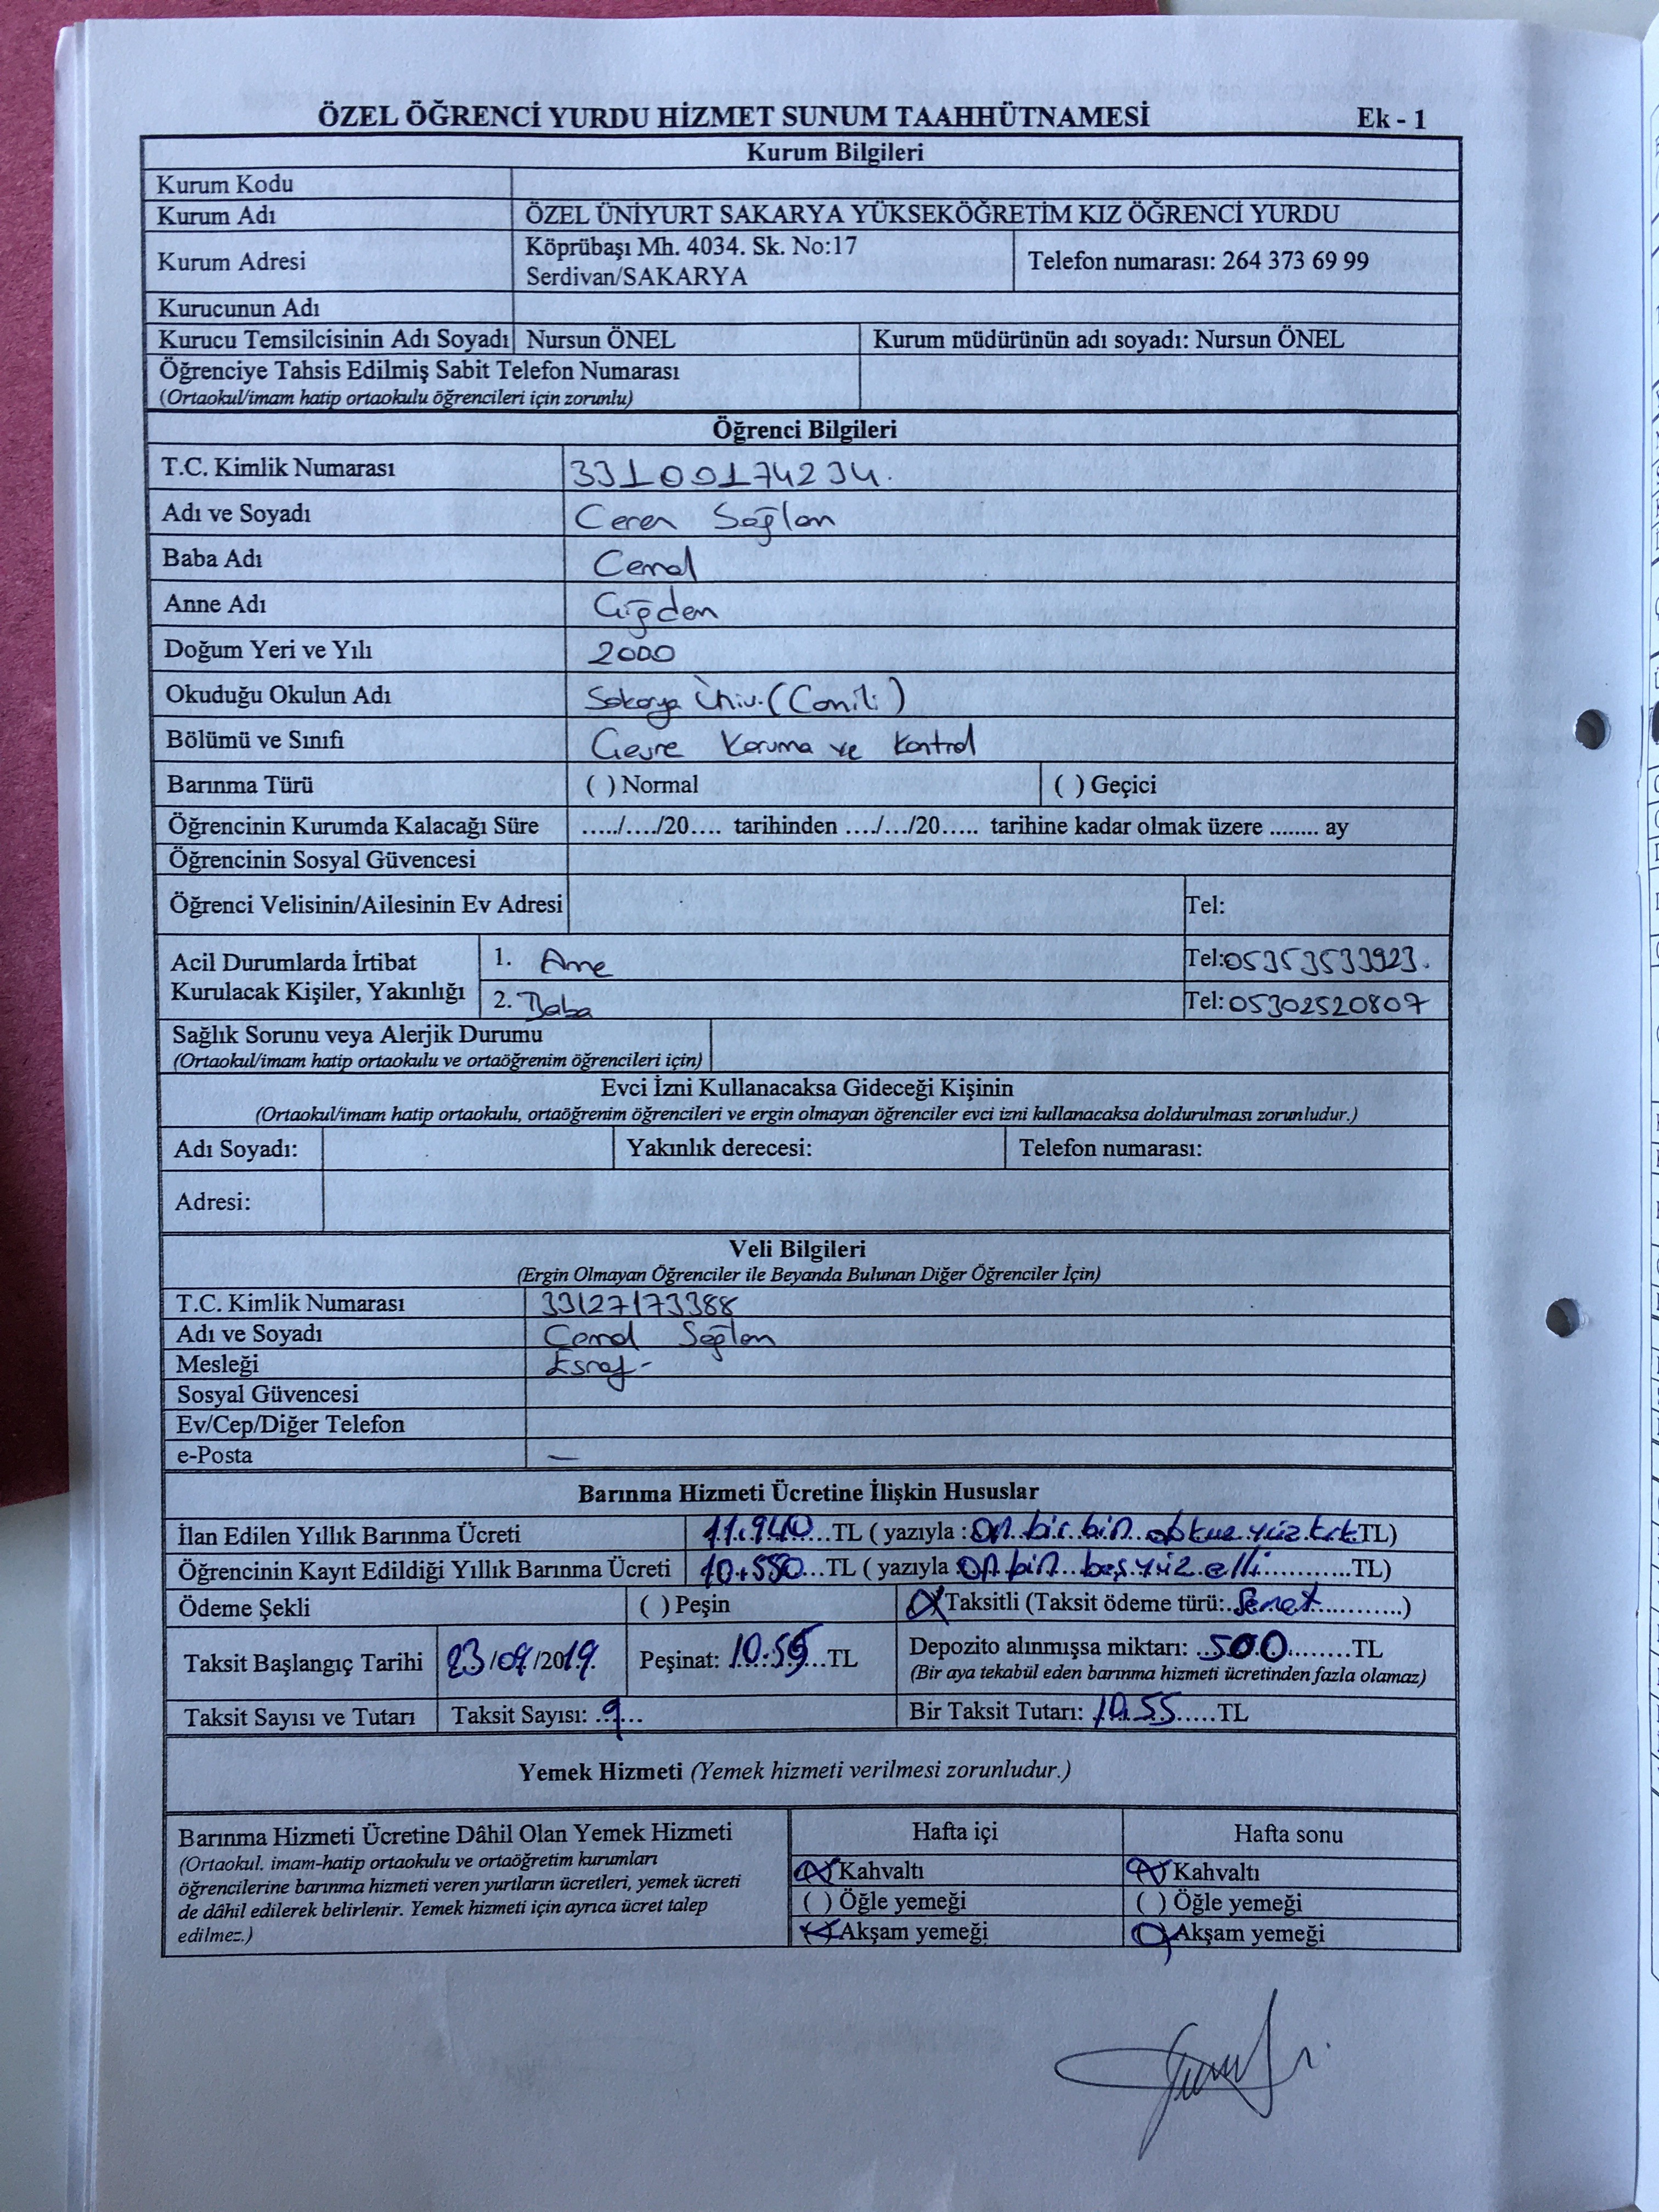 ÖZEL ÖĞRENCİ YURDU HİZMET SUNUM TAAHHÜTNAMESİ Ek - 1
Kurum Bilgileri
Kurum Kodu
Kurum Adı ÖZEL ÜNİYURT SAKARYA YÜKSEKÖĞRETİM KIZ ÖĞRENCİ YURDU
Kurum Adresi Köprübaşı Mh. 4034. Sk. No:17
Serdivan/SAKARYA Telefon numarası: 264 373 69 99
Kurucunun Adı
Kurucu Temsilcisinin Adı Soyadı Nursun ÖNEL Kurum müdürünün adı soyadı: Nursun ÖNEL
Öğrenciye Tahsis Edilmiş Sabit Telefon Numarası
(Ortaokul/imam hatip ortaokulu öğrencileri için zorunlu)
Öğrenci Bilgileri
T.C. Kimlik Numarası 33100174234.
Adı ve Soyadı Ceren Sağlan
Baba Adı Cemal
Anne Adı Çiğdem
Doğum Yeri ve Yılı 2000
Okuduğu Okulun Adı Sakarya Üniv. (Camili)
Bölümü ve Sınıfı Çevre Koruma ve Kontrol
Barınma Türü ( ) Normal ( ) Geçici
Öğrencinin Kurumda Kalacağı Süre ...../..../20.... tarihinden ..../.../20..... tarihine kadar olmak üzere ........ ay
Öğrencinin Sosyal Güvencesi
Öğrenci Velisinin/Ailesinin Ev Adresi Tel:
Acil Durumlarda İrtibat Kurulacak Kişiler, Yakınlığı
1. Anne Tel:05353533923.
2. Baba Tel: 05302520807
Sağlık Sorunu veya Alerjik Durumu
(Ortaokul/imam hatip ortaokulu ve ortaöğrenim öğrencileri için)
Evci İzni Kullanacaksa Gideceği Kişinin
(Ortaokul/imam hatip ortaokulu, ortaöğrenim öğrencileri ve ergin olmayan öğrenciler evci izni kullanacaksa doldurulması zorunludur.)
Adı Soyadı: Yakınlık derecesi: Telefon numarası:
Adresi:
Veli Bilgileri
(Ergin Olmayan Öğrenciler ile Beyanda Bulunan Diğer Öğrenciler İçin)
T.C. Kimlik Numarası 33127173388
Adı ve Soyadı Cemal Sağlan
Mesleği Esnaf-
Sosyal Güvencesi
Ev/Cep/Diğer Telefon
e-Posta —
Barınma Hizmeti Ücretine İlişkin Hususlar
İlan Edilen Yıllık Barınma Ücreti 11.940...TL ( yazıyla : on bir bin dokuz yüz kırk TL)
Öğrencinin Kayıt Edildiği Yıllık Barınma Ücreti 10.550...TL ( yazıyla on bin beş yüz elli............TL)
Ödeme Şekli ( ) Peşin (X) Taksitli (Taksit ödeme türü:..Senet...........)
Taksit Başlangıç Tarihi 23/09/2019. Peşinat: 10.55...TL Depozito alınmışsa miktarı: ..500........TL
(Bir aya tekabül eden barınma hizmeti ücretinden fazla olamaz)
Taksit Sayısı ve Tutarı Taksit Sayısı: ..9... Bir Taksit Tutarı: 10.55.....TL
Yemek Hizmeti (Yemek hizmeti verilmesi zorunludur.)
Barınma Hizmeti Ücretine Dâhil Olan Yemek Hizmeti
(Ortaokul. imam-hatip ortaokulu ve ortaöğretim kurumları
öğrencilerine barınma hizmeti veren yurtların ücretleri, yemek ücreti
de dâhil edilerek belirlenir. Yemek hizmeti için ayrıca ücret talep
edilmez.)
Hafta içi Hafta sonu
(X) Kahvaltı (X) Kahvaltı
( ) Öğle yemeği ( ) Öğle yemeği
(X) Akşam yemeği ( ) Akşam yemeği